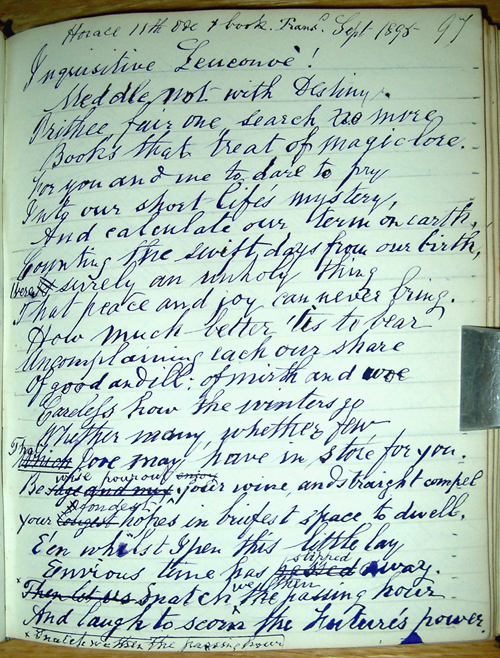 Horace 11th Ode 1 book. Transd. Sept 1895 97
Inquisitive Leuconoè!
Meddle not with Destiny.
Prithee fair one search no more
Books that treat of magic lore.
For you and me to dare to pry
Into our short life's mystery,
And calculate our term on earth,
Counting the swift days from our birth,
Were surely an unholy thing
That peace and joy can never bring.
How much better 'tis to bear
Uncomplaining each our share
Of good and ill: of mirth and woe
Careless how the winters go
Whether many, whether few
That
Which Jove may have in store for you.
wise pour out enjoy
Be sage and mix your wine, and straight compel
fondest
your longest hopes in briefest space to dwell.
E'en whilst I pen this little lay
slipped
Envious time has away.
we then
Then let us snatch the passing hour
And laugh to scorn the Future's power.
x Snatch we then the passing hour